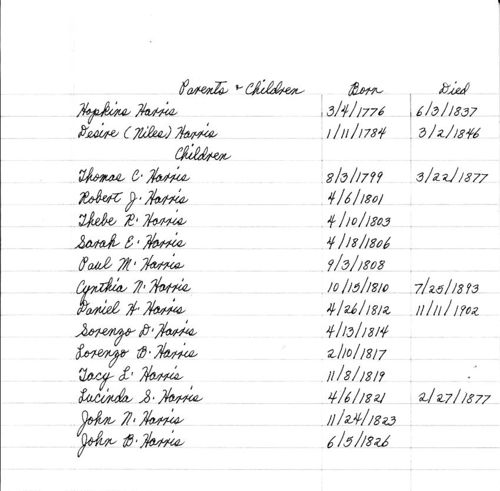 Parents & Children Born Died
Hopkins Harris 3/4/1776 6/3/1837
Desire (Niles) Harris 1/11/1784 3/2/1846
Children
Thomas C. Harris 8/3/1799 3/22/1877
Robert J. Harris 4/6/1801
Thebe R. Harris 4/10/1803
Sarah E. Harris 4/18/1806
Paul M. Harris 9/3/1808
Cynthia N. Harris 10/15/1810 7/25/1893
Daniel H. Harris 4/26/1812 11/11/1902
Sorenzo D. Harris 4/13/1814
Lorenzo B. Harris 2/10/1817
Tacy L. Harris 11/8/1819
Lucinda S. Harris 4/6/1821 2/27/1877
John N. Harris 11/24/1823
John B. Harris 6/5/1826